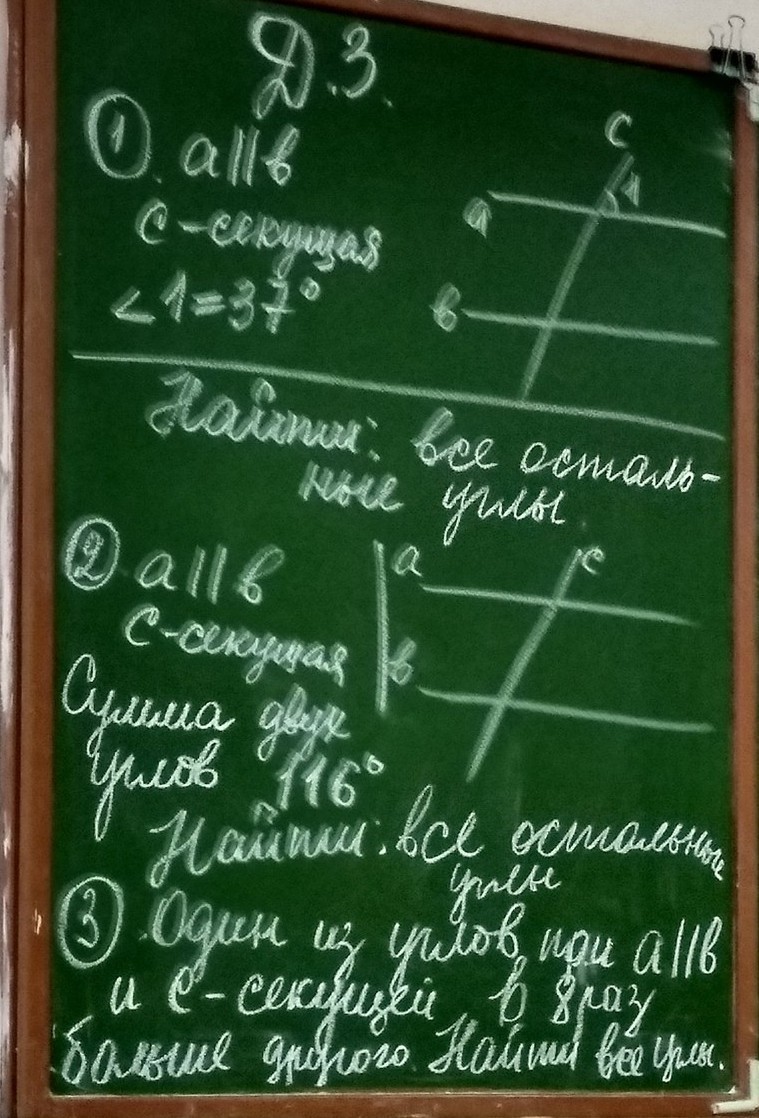 Д.З.
① a||b
c-секущая
∠1=37°
c
1
a
b
Найти: все осталь-
ные углы.
② a||b
c-секущая
a
c
b
Сумма двух
углов 116°
Найти: все остальные
углы
③ Один из углов при a||b
и c-секущей в 8 раз
больше другого. Найти все углы.